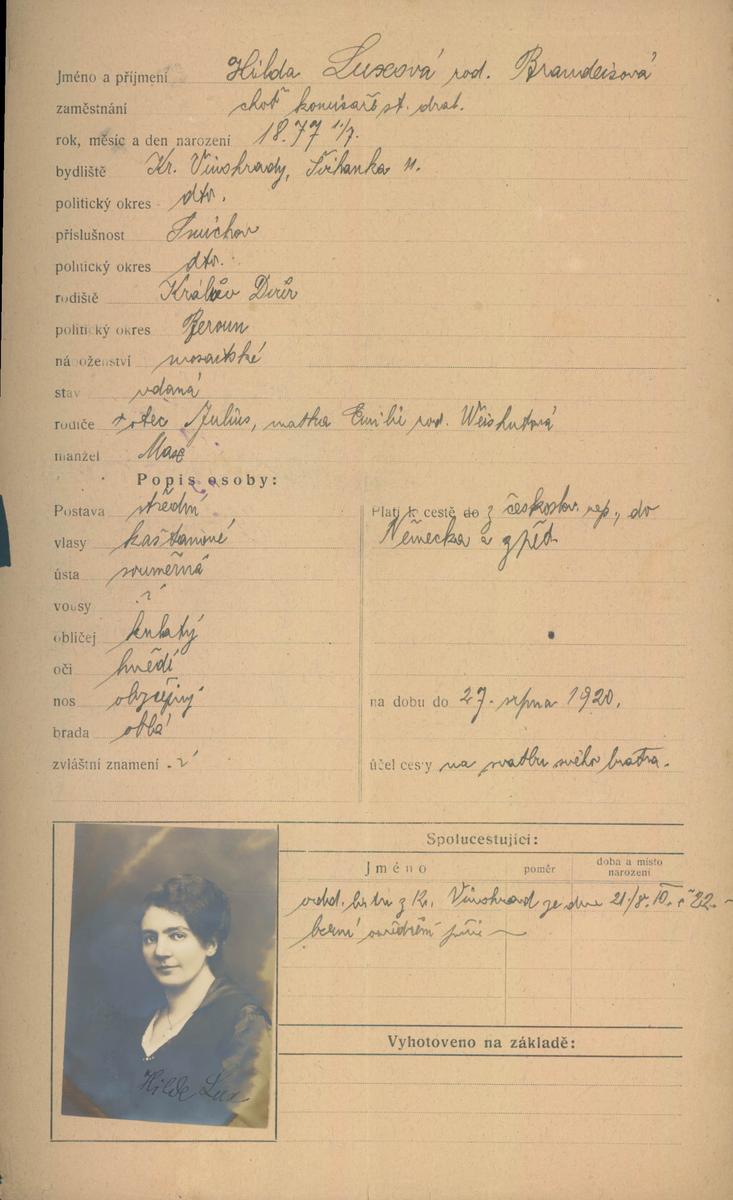 Jméno a příjmení Hilda Luxová rod. Brandeisová
zaměstnání choť komisaře st. drah.
rok, měsíc a den narození 18.77 11/7.
bydliště Kr. Vinohrady, 11.
politický okres dto.
příslušnost Smíchov
politický okres dto.
rodiště Králův Dvůr
politický okres Beroun
náboženství mosaitské
stav vdaná
rodiče otec Julius, matka Emilie rod.
manžel Max
Popis osoby:
Postava střední
Platí k cestě do z českoslov. rep., do
vlasy kaštanové
Německa a zpět
ústa souměrná
vousy
obličej kulatý
oči hnědé
nos obyčejný
na dobu do 27. srpna 1920.
brada oblá
zvláštní znamení
účel cesty na svatbu svého bratra.
Spolucestující:
Jméno poměr doba a místo
narození
z Kr. Vinohrad ze dne 21./8.
Vyhotoveno na základě:
Hilde Lux